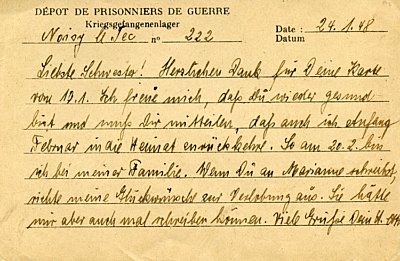 DÉPOT DE PRISONNIERS DE GUERRE
Kriegsgefangenenlager
Noisy le Sec nº 222
Date : 24.1.48
Datum
Liebste Schwester! Herzlichen Dank für Deine Karte
vom 13.1. Ich freue mich, daß Du wieder gesund
bist und muß Dir mitteilen, daß auch ich Anfang
Februar in die Heimat zurückkehre. So am 20.2. bin
ich bei meiner Familie. Wenn Du an Marianne schreibst,
richte meine Glückwünsche zur Verlobung aus. Sie hätte
mir aber auch mal schreiben können. Viele Grüße Dein H.